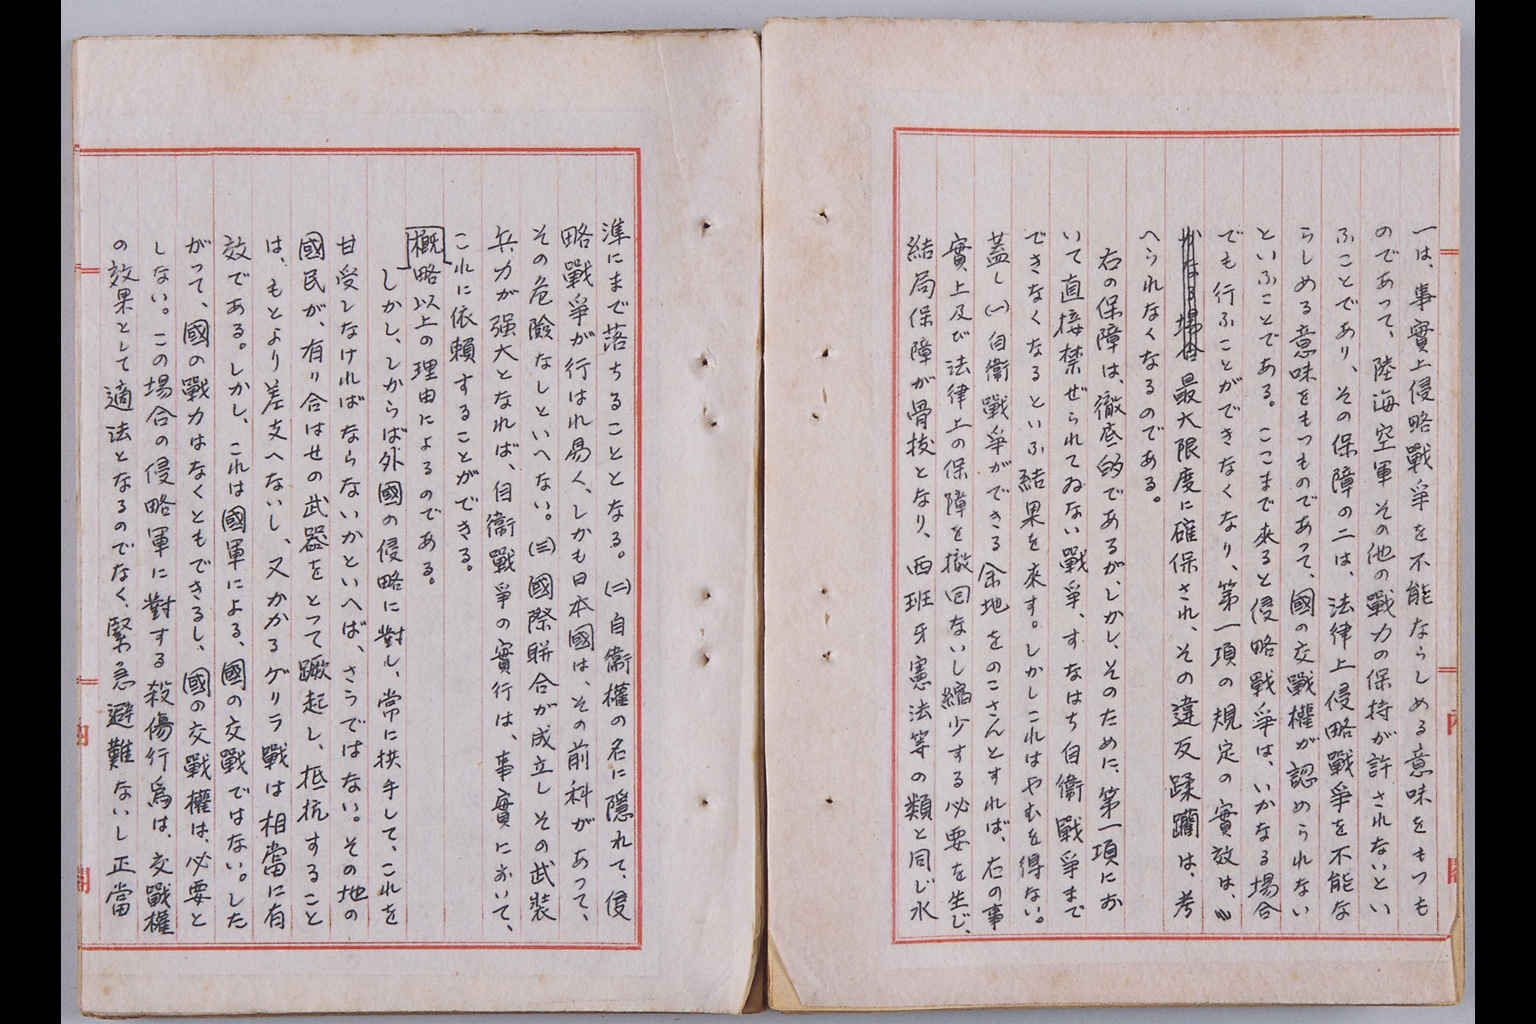 一は、事實上侵略戰爭を不能ならしめる意味をもつも
のであつて、陸海空軍その他の戰力の保持が許されないとい
ふことであり、その保障の二は、法律上侵略戰爭を不能な
らしめる意味をもつものであつて、國の交戰權が認められない
といふことである。ここまで來ると侵略戰爭は、いかなる場合
でも行ふことができなくなり、第一項の規定の實效は、
最大限度に確保され、その違反蹂躙は、考
へられなくなるのである。
右の保障は、徹底的であるが、しかし、そのために、第一項にお
いて直接禁ぜられてゐない戰爭、すなはち自衞戰爭まで
できなくなるといふ結果を來す。しかしこれはやむを得ない。
蓋し㈠自衞戰爭ができる余地をのこさんとすれば、右の事
實上及び法律上の保障を撤回ないし縮少する必要を生じ、
結局保障が骨拔となり、西班牙憲法等の類と同じ水
準にまで落ちることとなる。㈡自衞權の名に隱れて、侵
略戰爭が行はれ易く、しかも日本國は、その前科があつて、
その危險なしといへない。㈢國際聯合が成立しその武裝
兵力が强大となれば、自衞戰爭の實行は、事實において、
これに依賴することができる。
概略以上の理由によるのである。
しかし、しからば外國の侵略に對し、常に拱手して、これを
甘受しなければならないかといへば、さうではない。その地の
國民が、有り合はせの武器をとつて蹶起し、抵抗すること
は、もとより差支へないし、又かかるゲリラ戰は相當に有
效である。しかし、これは國軍による、國の交戰ではない。した
がつて、國の戰力はなくともできるし、國の交戰權は、必要と
しない。この場合の侵略軍に對する殺傷行爲は、交戰權
の效果として適法となるのでなく、緊急避難ないし正當
内
閣
内
閣